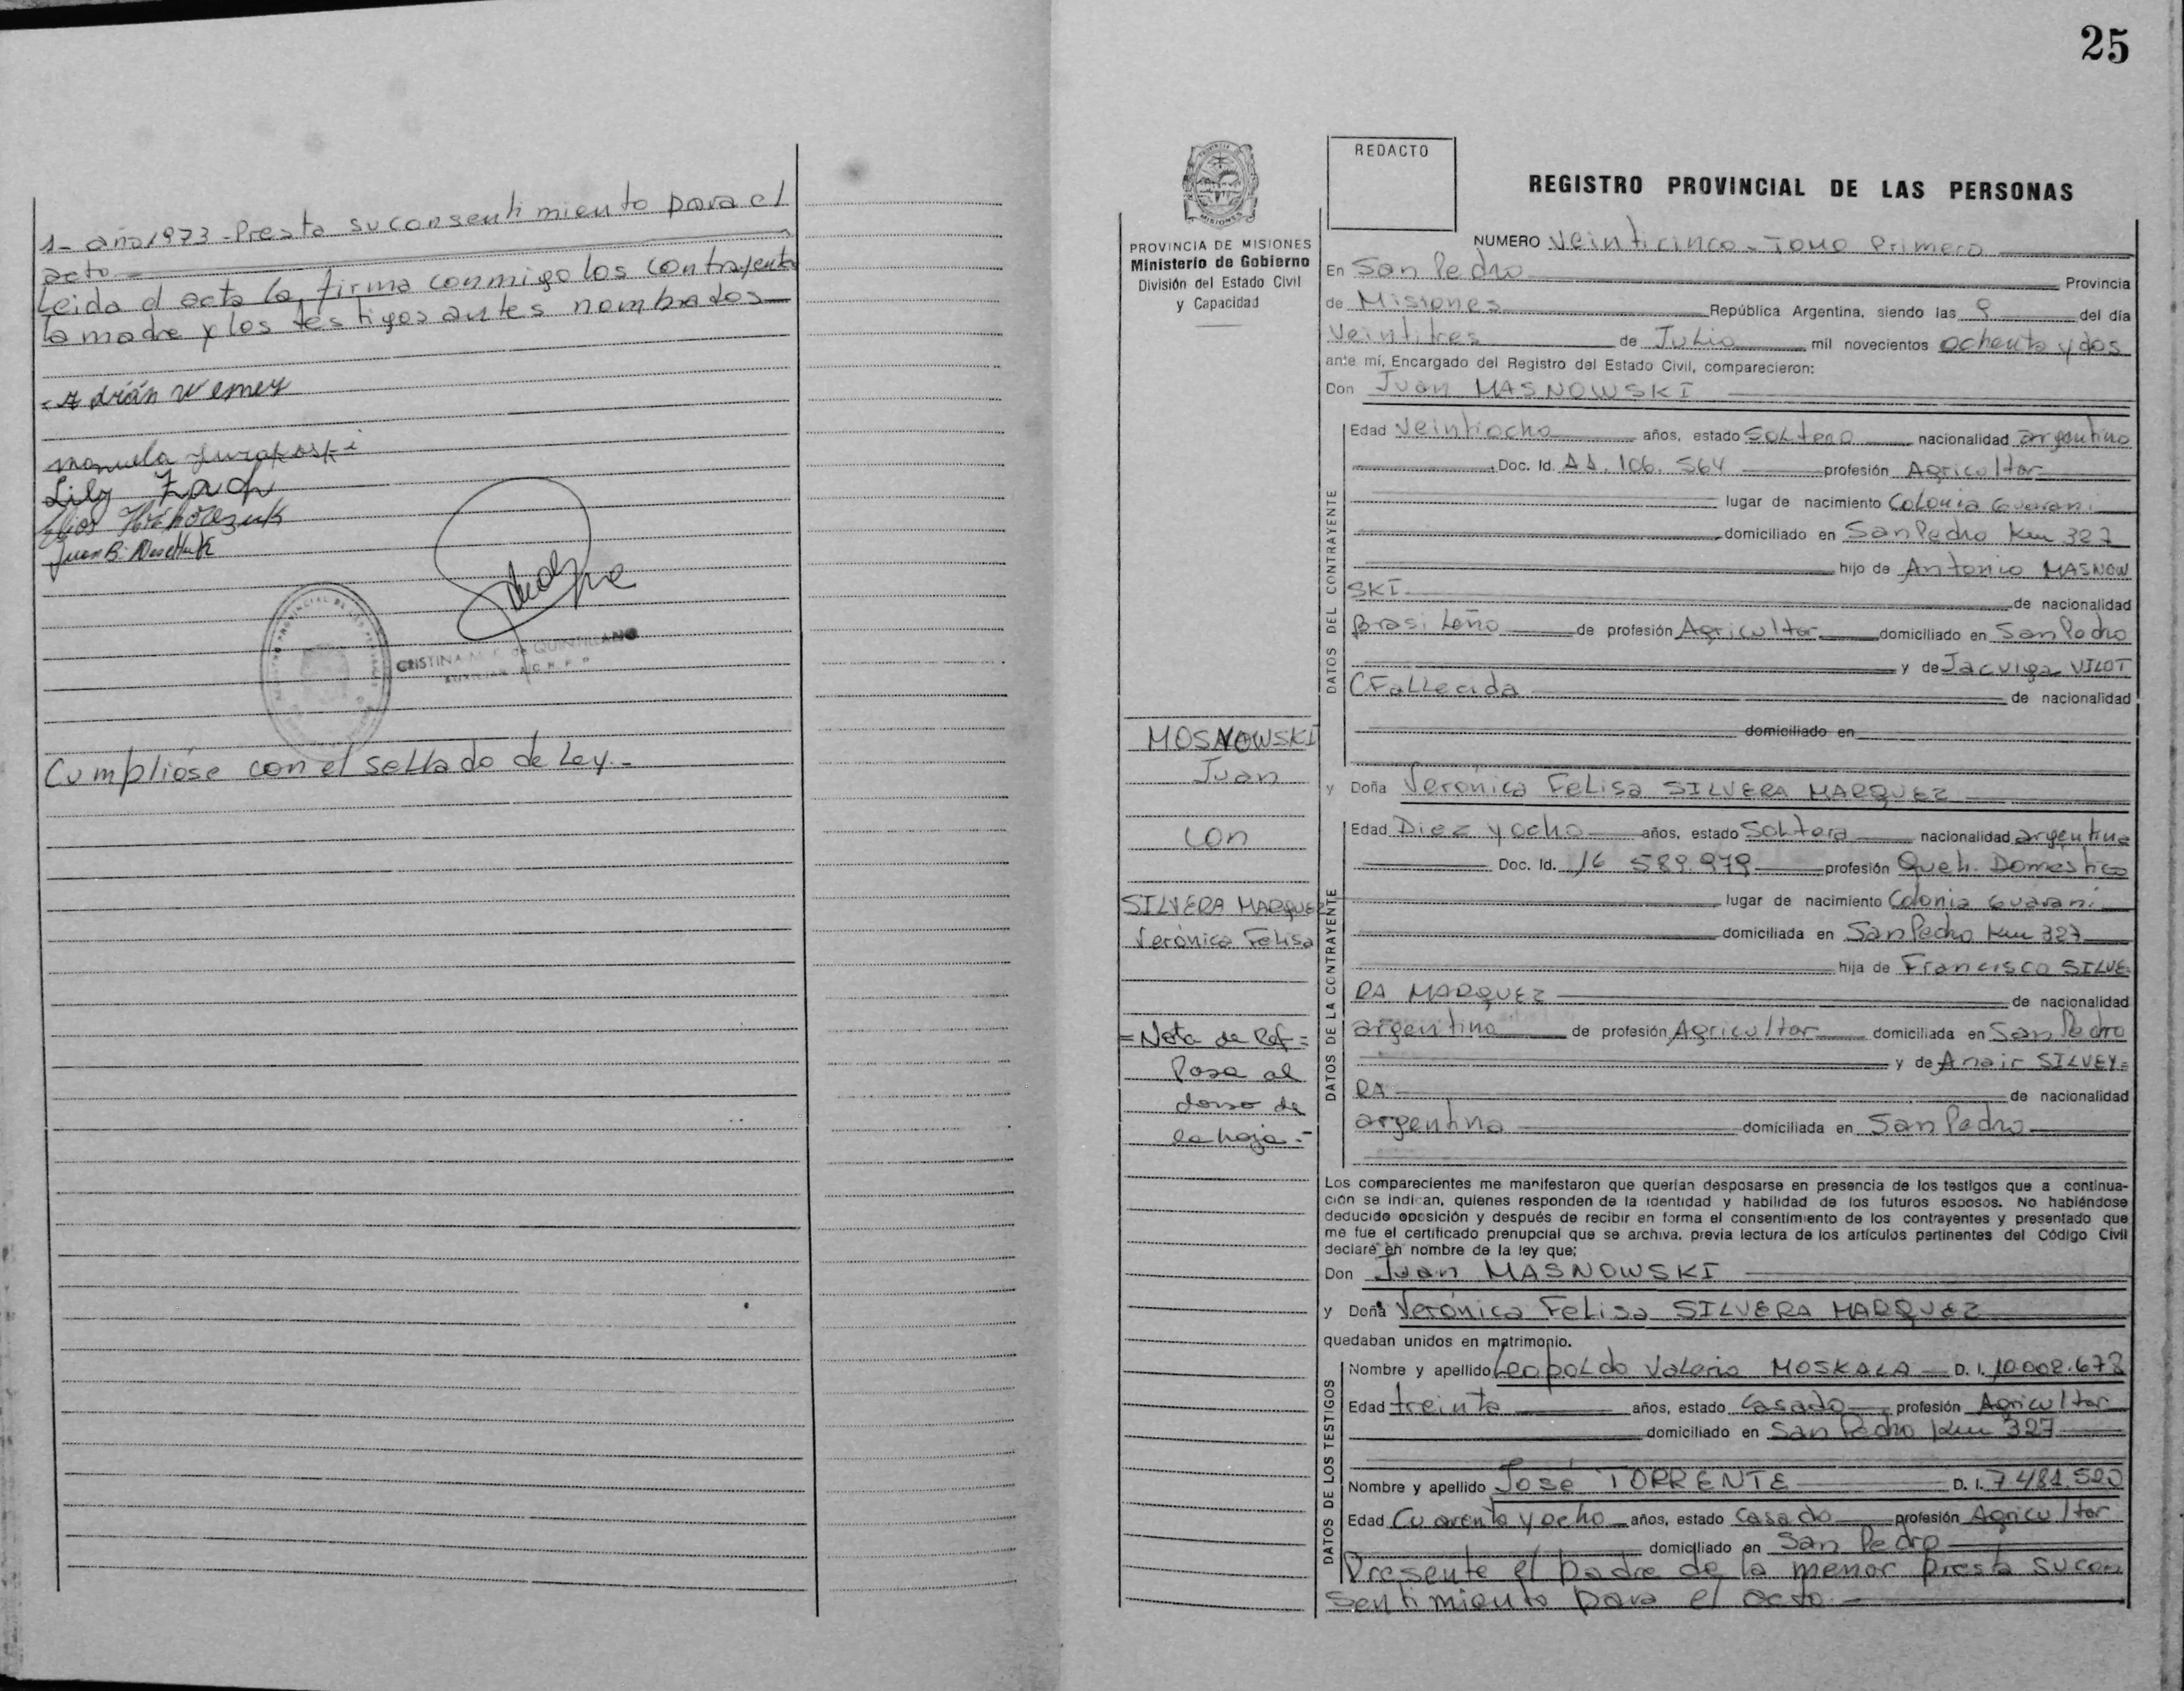 1- año 1973 - Presta su consentimiento para el
acto
Leida el acta la firma conmigo los contrayente
la madre y los testigos antes nombrados
Adrián Wemer
Manuela
Lily Zach
Elias
Juan B.
CRISTINA M. de QUINTILLANO
AUXILIAR
Cumplióse con el sellado de Ley.-
25
REDACTO
REGISTRO PROVINCIAL DE LAS PERSONAS
PROVINCIA DE MISIONES
Ministerio de Gobierno
División del Estado Civil
y Capacidad
NUMERO Veinticinco - TOMO Primero
En San Pedro Provincia
de Misiones República Argentina, siendo las 9 del día
Veintitres de Julio mil novecientos ochenta y dos
ante mí, Encargado del Registro del Estado Civil, comparecieron:
Don Juan MASNOWSKI
DATOS DEL CONTRAYENTE
Edad Veintiocho años, estado Soltero nacionalidad argentino
Doc. Id. 11.106.564 profesión Agricultor
lugar de nacimiento Colonia Guarani
domiciliado en San Pedro Km 327
hijo de Antonio MASNOW
SKI de nacionalidad
Brasileño de profesión Agricultor domiciliado en San Pedro
y de Jacuiga VILOT
(Fallecida de nacionalidad
domiciliado en
MOSNOWSKI
Juan
con
SILVERA MARQUEZ
Verónica Felisa
= Nota de Ref =
Pasa al
dorso de
la hoja.-
y Doña Verónica Felisa SILVERA MARQUEZ
DATOS DE LA CONTRAYENTE
Edad Diez y ocho años, estado Soltera nacionalidad argentina
Doc. Id. 16 589.979 profesión Queh. Domestico
lugar de nacimiento Colonia Guarani
domiciliada en San Pedro Km 327
hija de Francisco SILVE-
RA MARQUEZ de nacionalidad
argentino de profesión Agricultor domiciliada en San Pedro
y de Anair SILVEY=
RA de nacionalidad
argentina domiciliada en San Pedro
Los comparecientes me manifestaron que querían desposarse en presencia de los testigos que a continua-
ción se indican, quienes responden de la identidad y habilidad de los futuros esposos. No habiéndose
deducido oposición y después de recibir en forma el consentimiento de los contrayentes y presentado que
me fue el certificado prenupcial que se archiva, previa lectura de los artículos pertinentes del Código Civil
declaré en nombre de la ley que;
Don Juan MASNOWSKI
y Doña Verónica Felisa SILVERA MARQUEZ
quedaban unidos en matrimonio.
DATOS DE LOS TESTIGOS
Nombre y apellido Leopoldo Valerio MOSKALA D. I. 10.002.678
Edad treinta años, estado Casado profesión Agricultor
domiciliado en San Pedro Km 327
Nombre y apellido José TORRENTE D. I. 7.481.520
Edad Cuarenta y ocho años, estado Casado profesión Agricultor
domiciliado en San Pedro
Presente el padre de la menor presta su con
sentimiento para el acto.